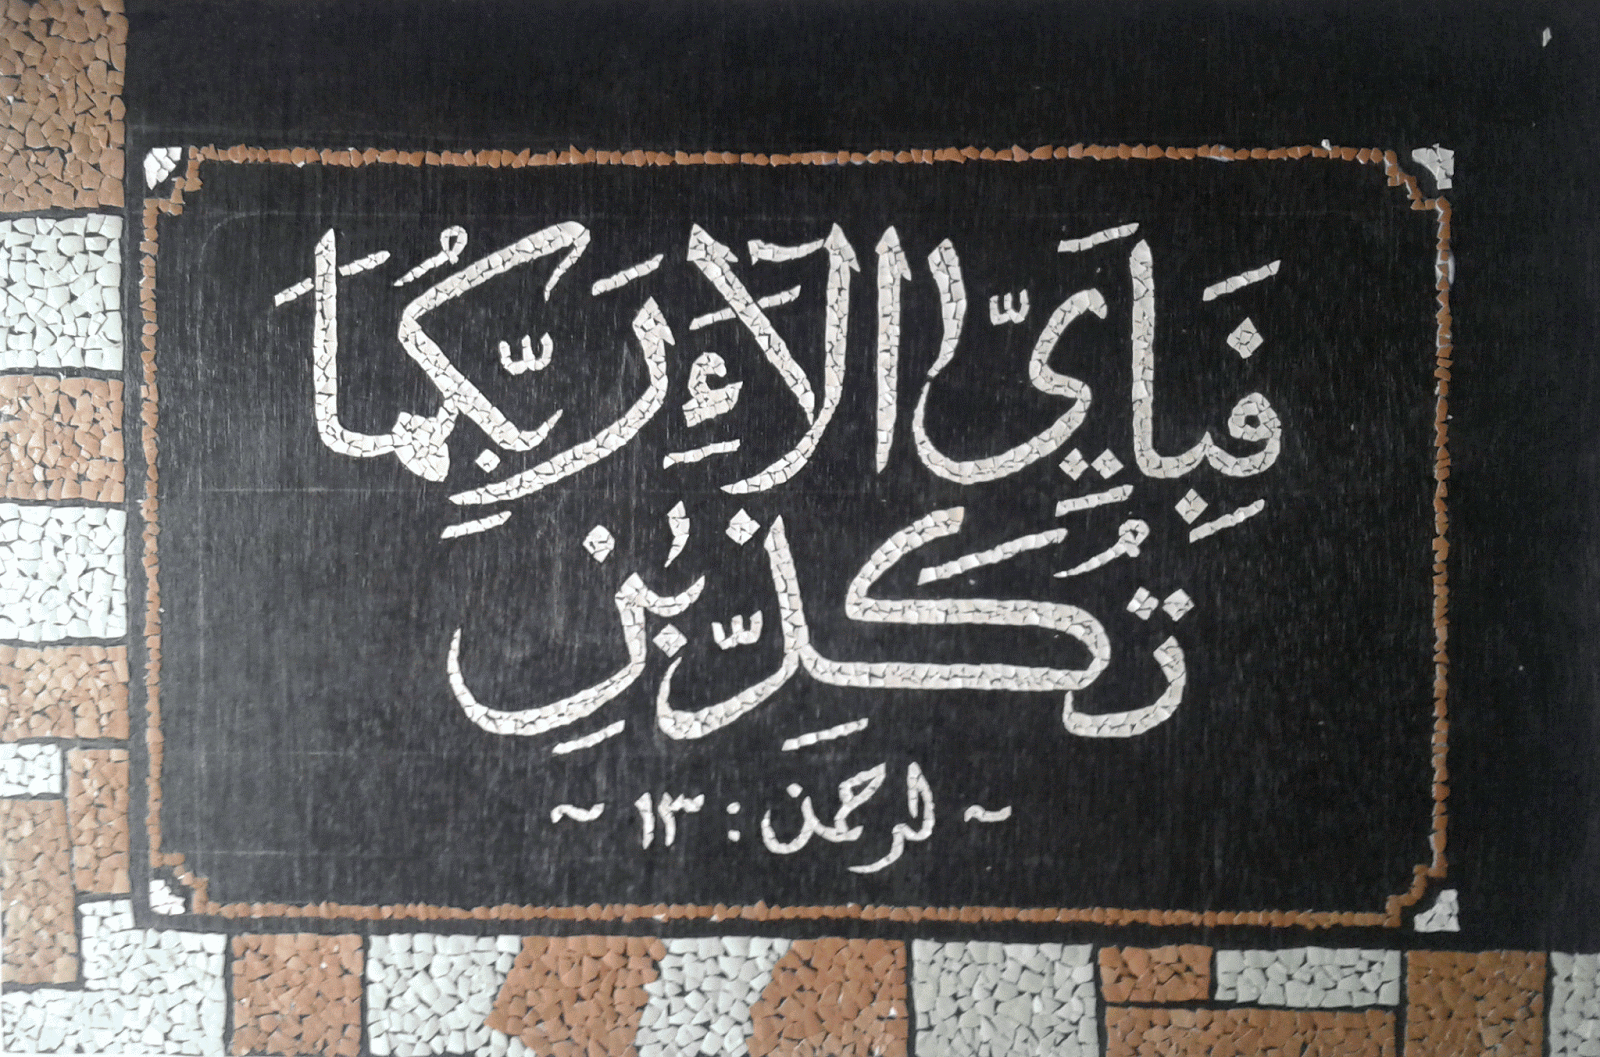 فَبِاَيِّ اٰلَآءِ رَبِّكُمَا
تُكَذِّبٰنِ
~ الرحمن : ١٣ ~